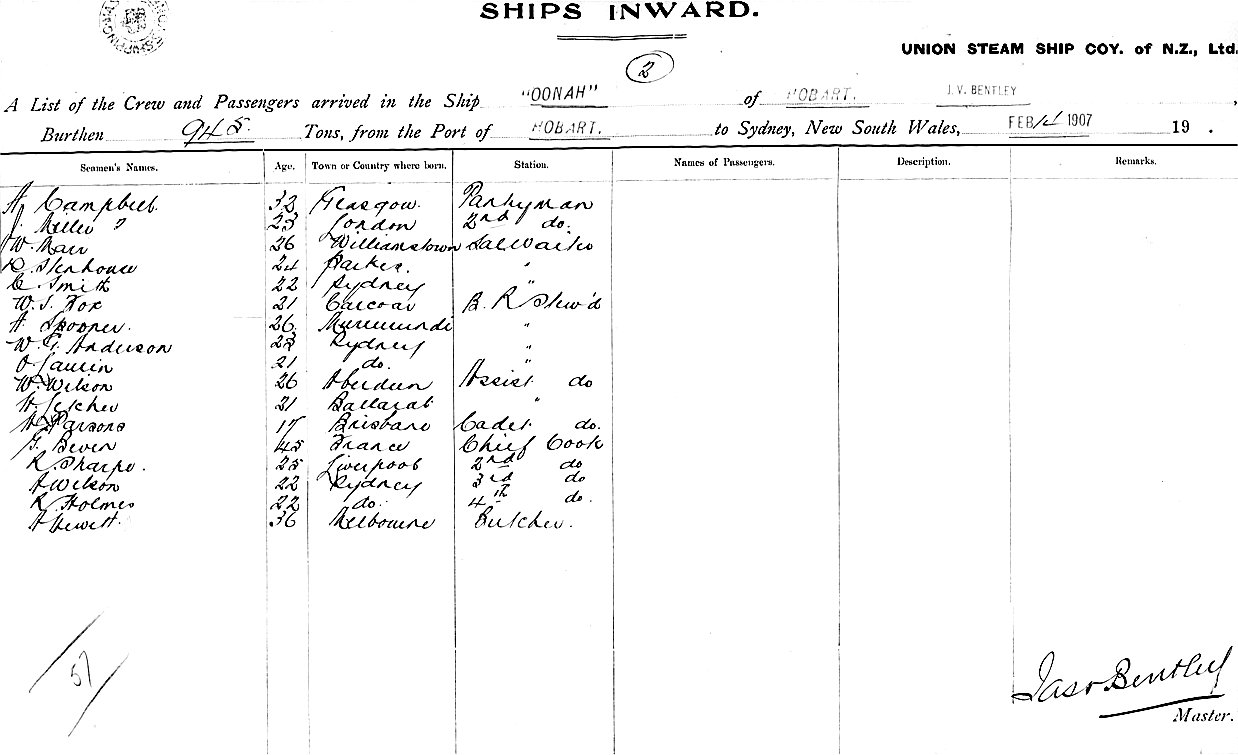 SHIPS INWARD.
UNION STEAM SHIP COY. of N.Z., Ltd.
2
A List of the Crew and Passengers arrived in the Ship "OONAH" of HOBART. J.V. BENTLEY,
Burthen 945. Tons, from the Port of HOBART. to Sydney, New South Wales, FEB 1907 19 .
Seamen's Names. Age. Town or Country where born. Station. Names of Passengers. Description. Remarks.
A Campbell. 32 Glasgow. Pantryman
J. Miller ? 23 London 2nd do.
W. Marr 26 Williamstown Sal Waiter
R Stenhouse 24 Parkes. "
C. Smith 22 Sydney "
W. J. Fox 21 Carcoar B. R Stew'd
A Spooner. 26. Murrurundi "
W. G. Anderson 28 Sydney "
O 21 do.
W. Wilson 26 Aberdeen Assist do
H. 21 Ballarat "
H Parsons 17 Brisbane Cadet do.
G. Beven 45 France Chief Cook
R Sharpe. 25 Liverpool 2nd do
A Wilson 22 Sydney 3rd do
R Holmes 22 do. 4th do.
A Hewett. 36 Melbourne Butcher.
Jas V Bentley
Master.